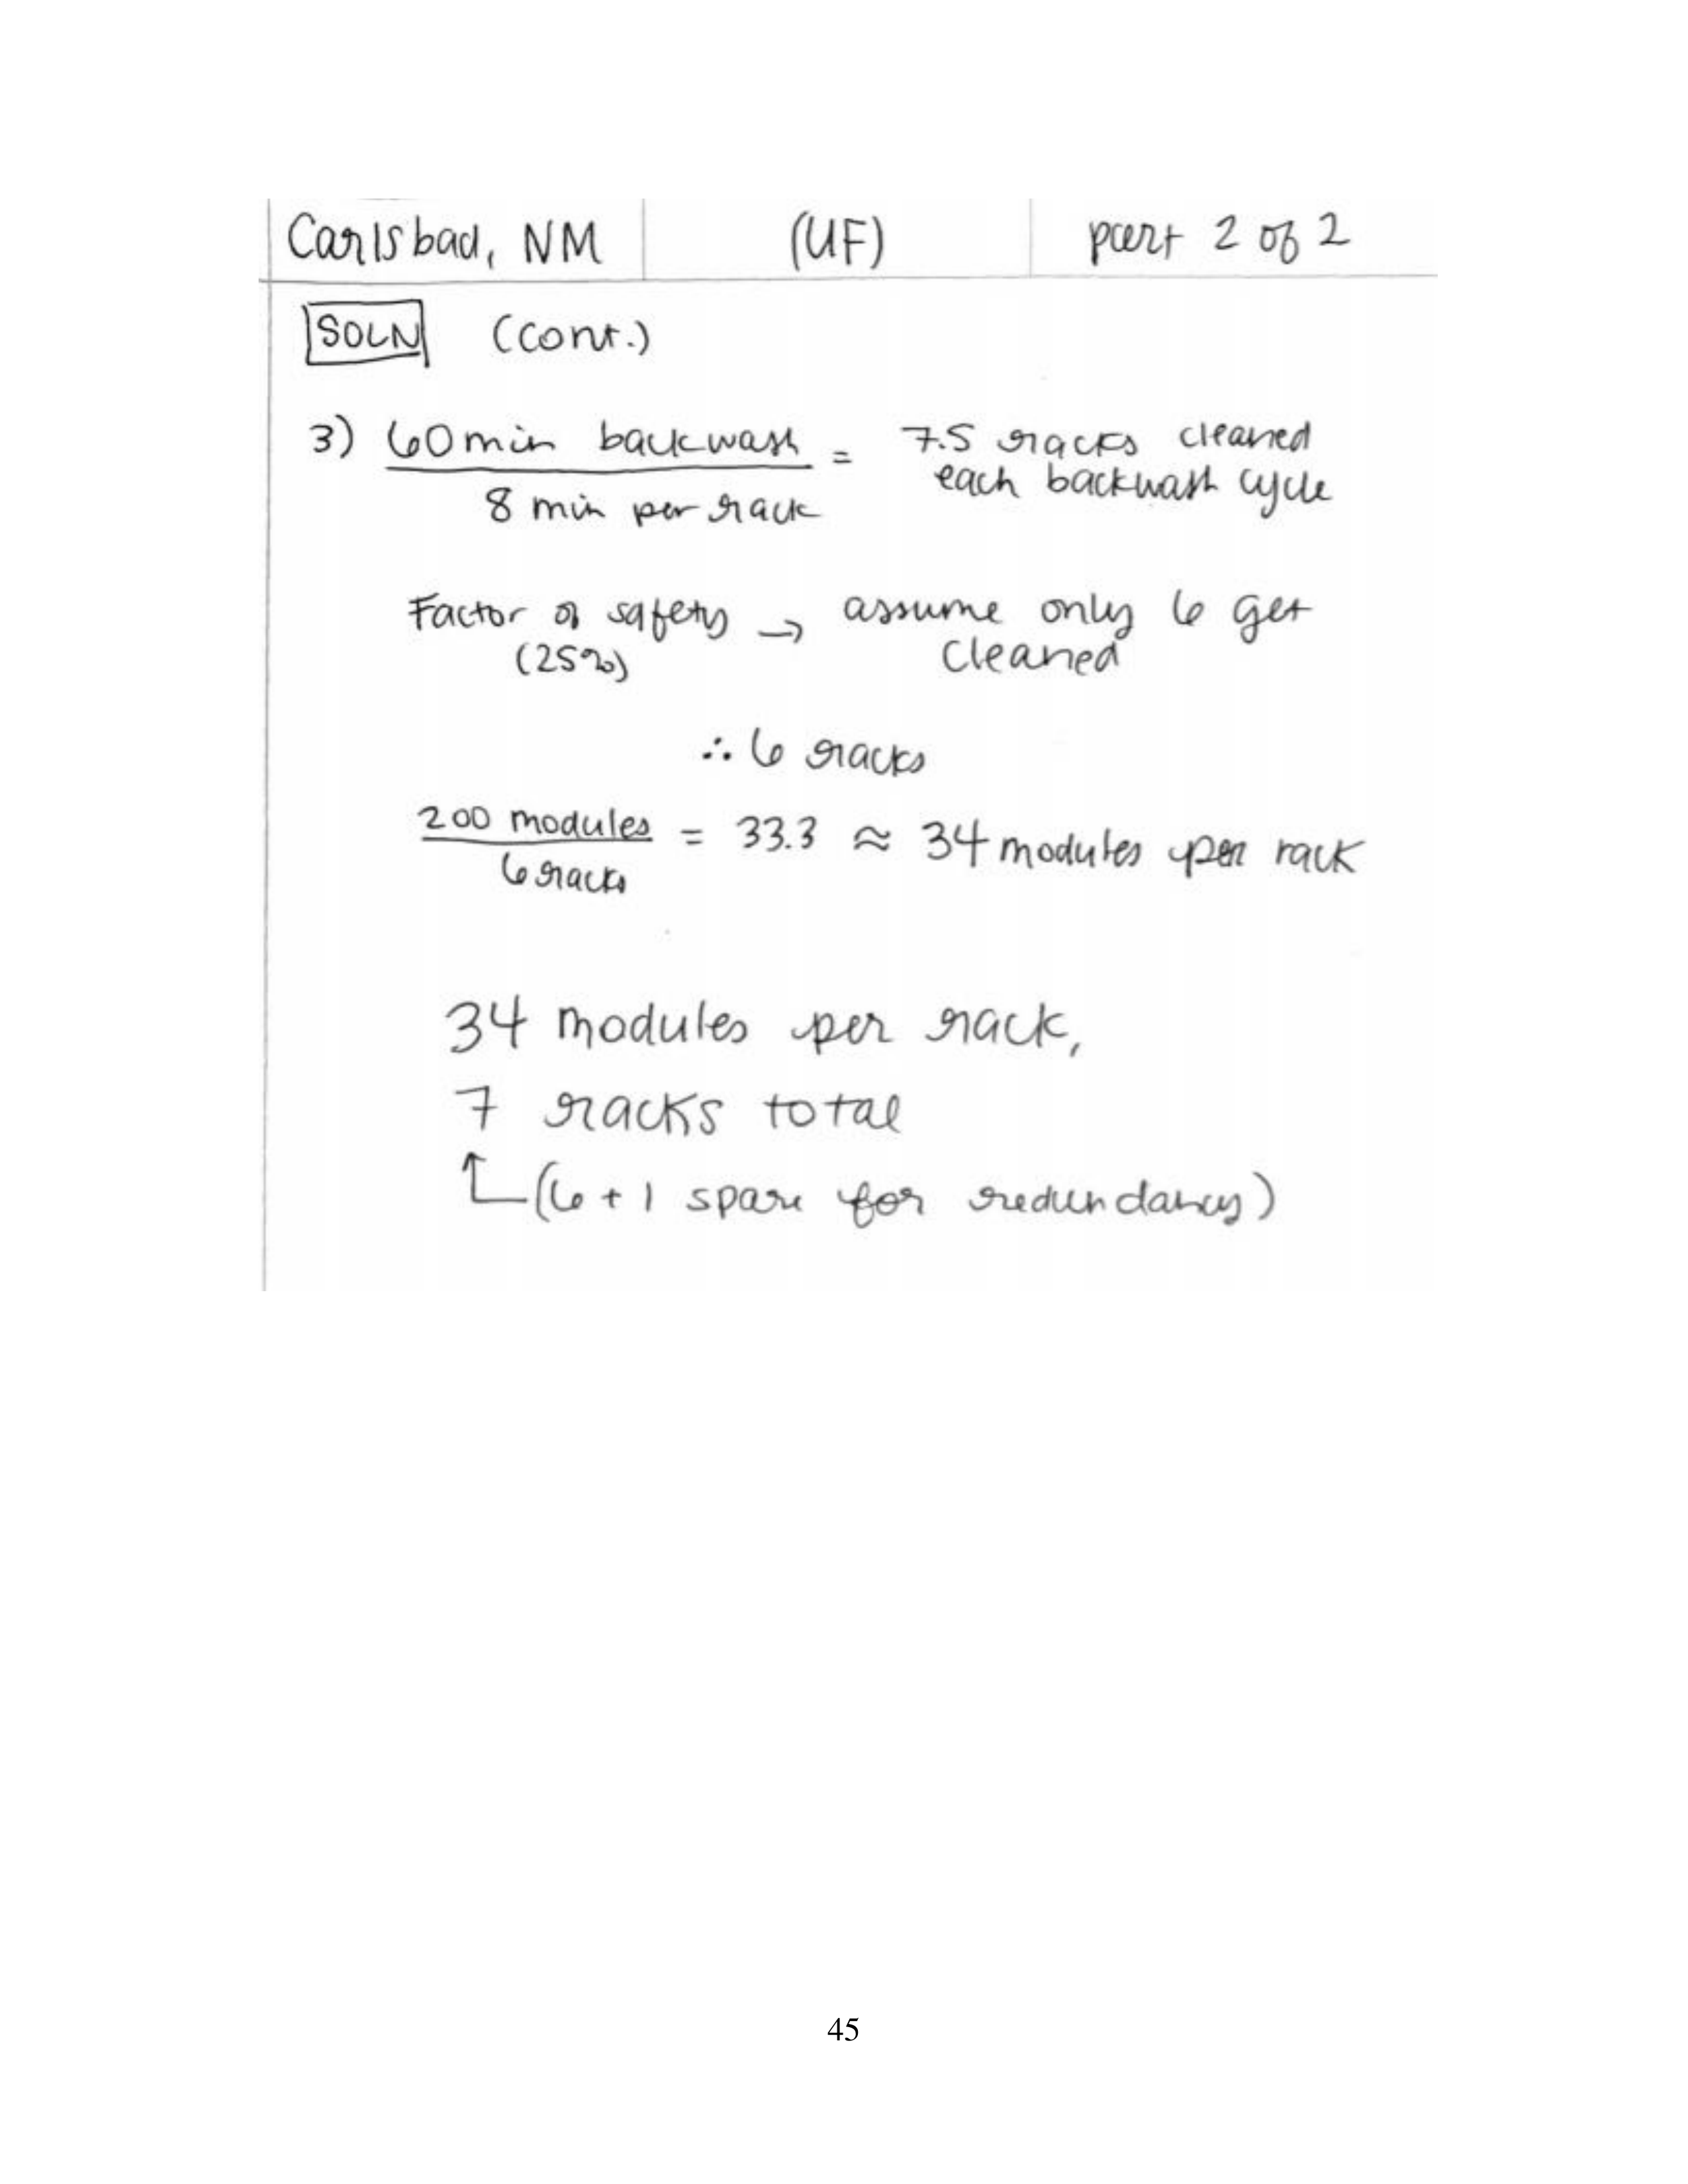 Carlsbad, NM (UF) part 2 of 2
SOLN (cont.)
3) 60 min backwash = 7.5 racks cleaned
8 min per rack each backwash cycle
Factor of safety → assume only 6 get
(25%) cleaned
∴ 6 racks
200 modules = 33.3 ≈ 34 modules per rack
6 racks
34 modules per rack,
7 racks total
↑ (6 + 1 spare for redundancy)
45